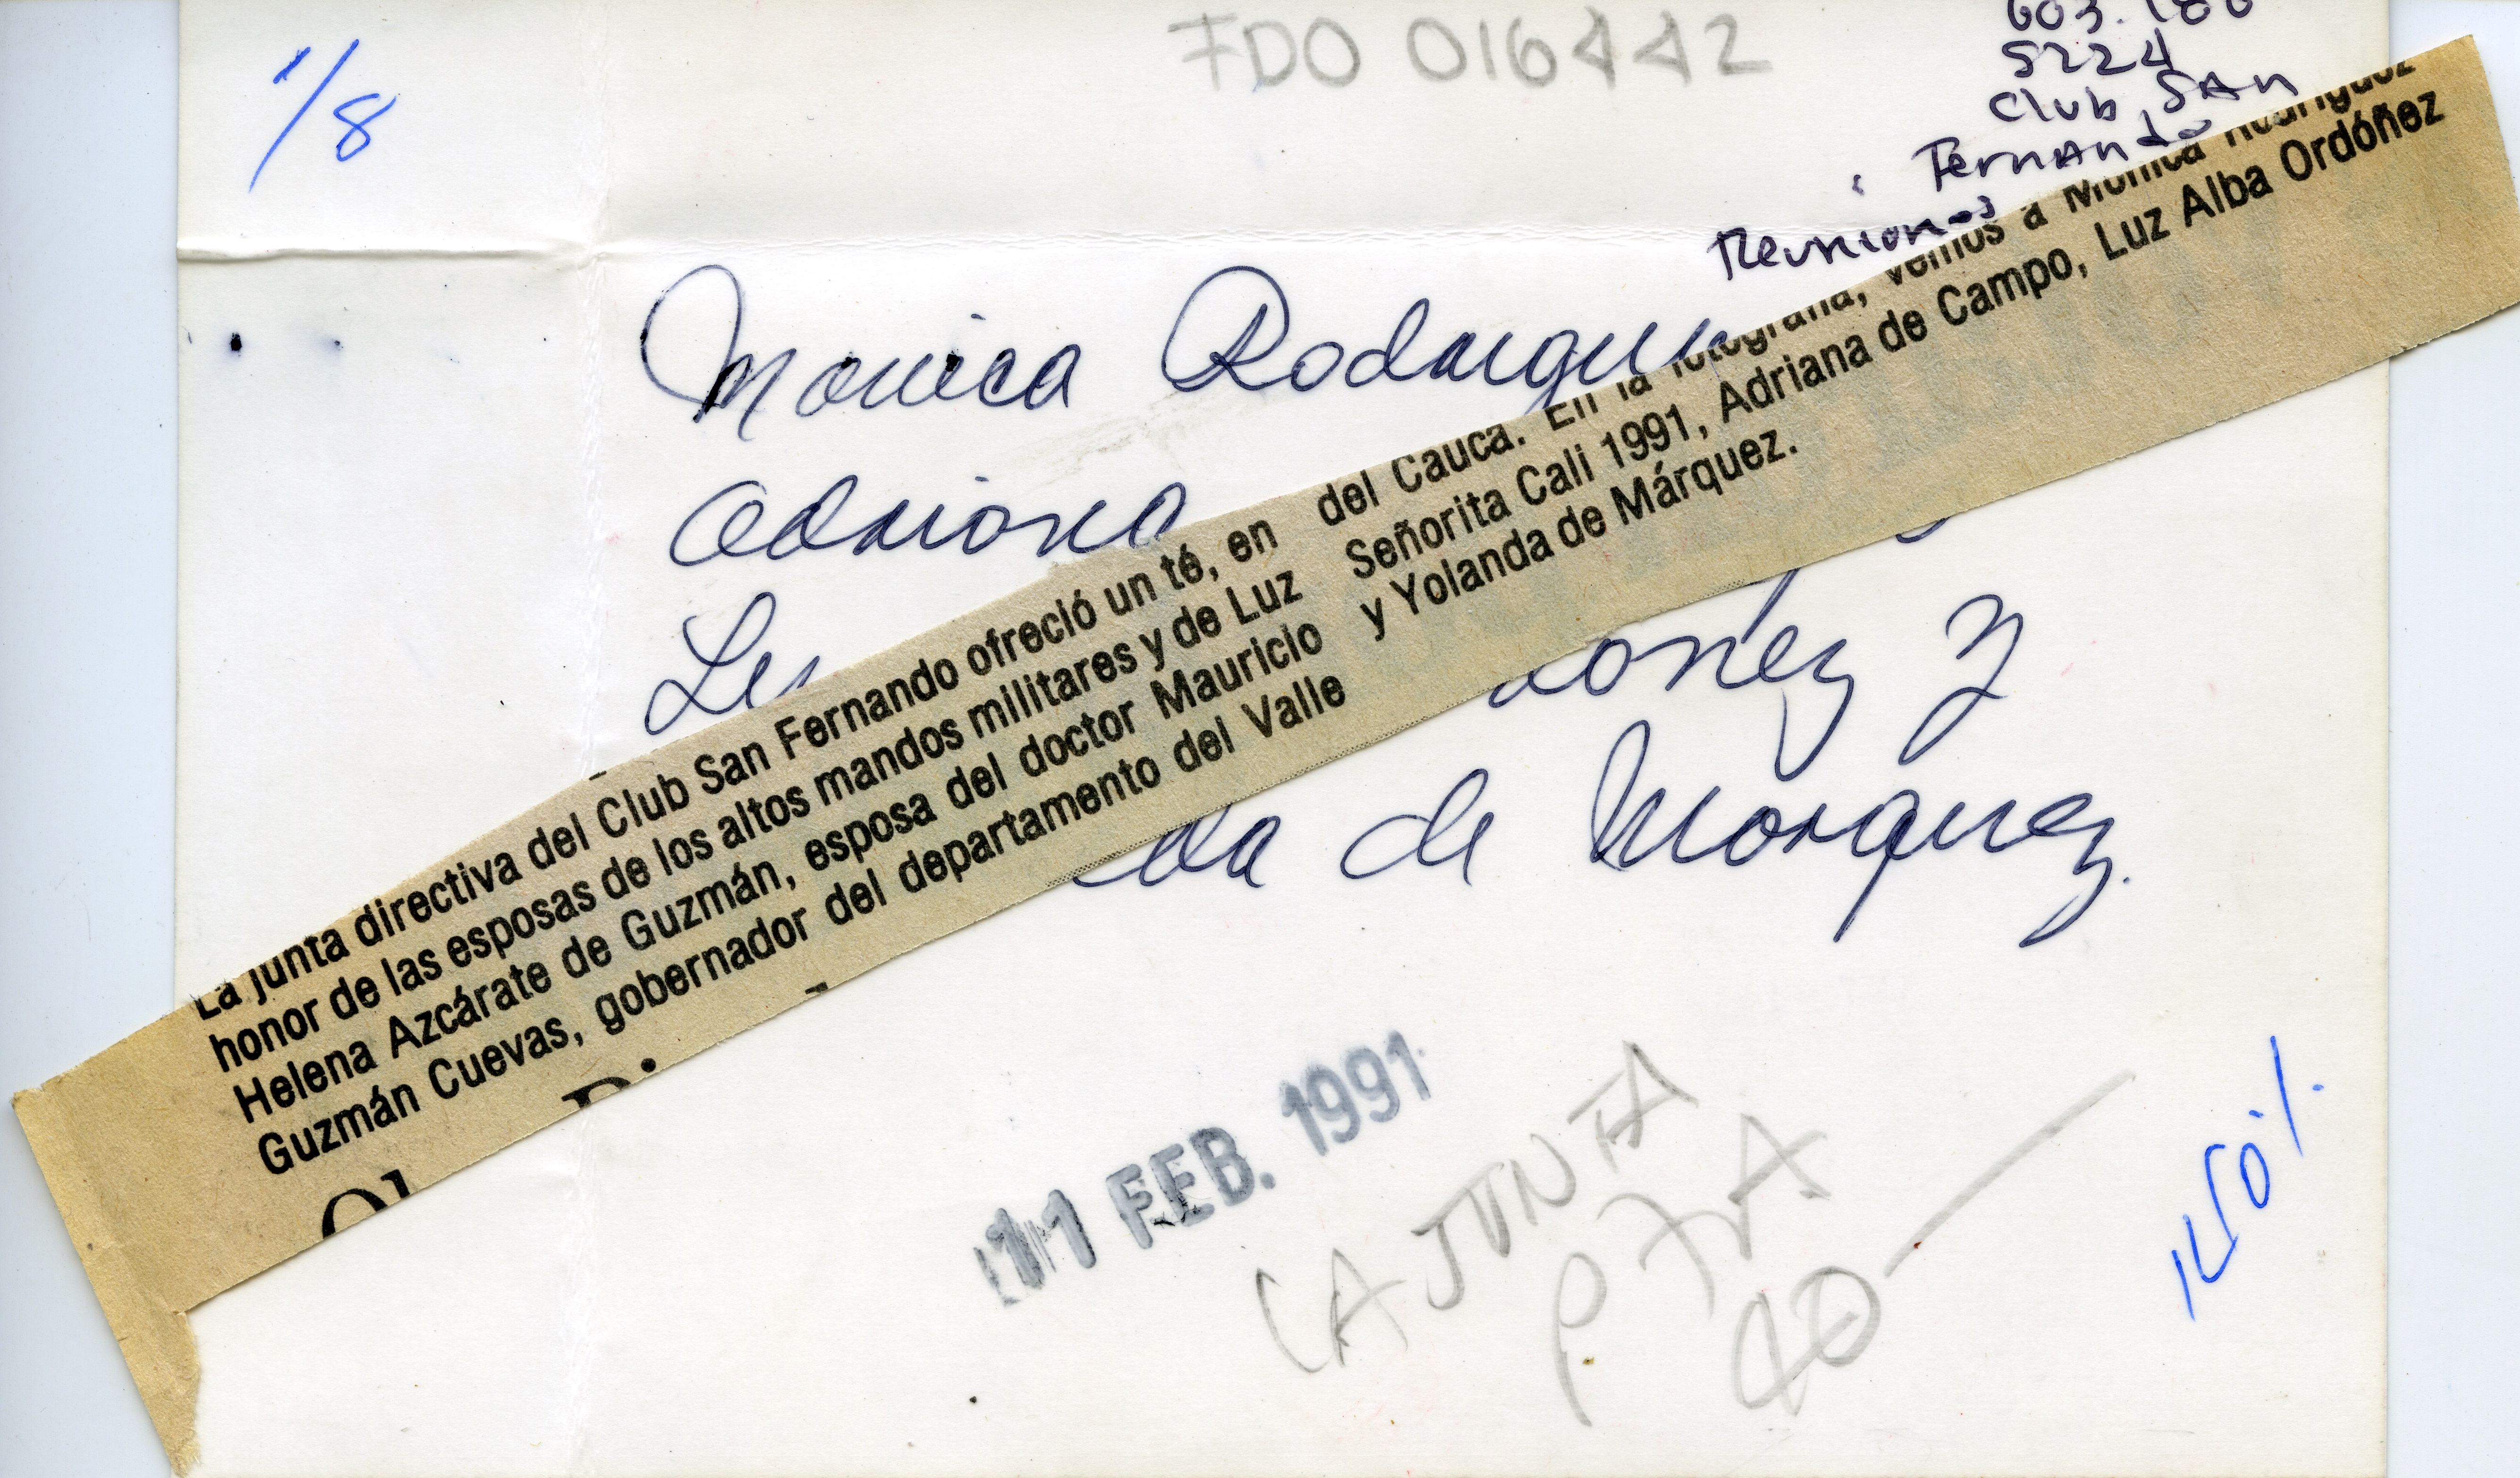 1/8
FDO 016442
5224
Club SAN
Fernando
Reuniones
Monica
Adriana
de Marquez.
La junta directiva del Club San Fernando ofreció un té, en
honor de las esposas de los altos mandos militares y de Luz
Helena Azcárate de Guzmán, esposa del doctor Mauricio
Guzmán Cuevas, gobernador del departamento del Valle
del Cauca. En la fotografía, vemos a Mónica Rodríguez
Señorita Cali 1991, Adriana de Campo, Luz Alba Ordóñez
y Yolanda de Márquez.
11 FEB. 1991
LA JUNTA